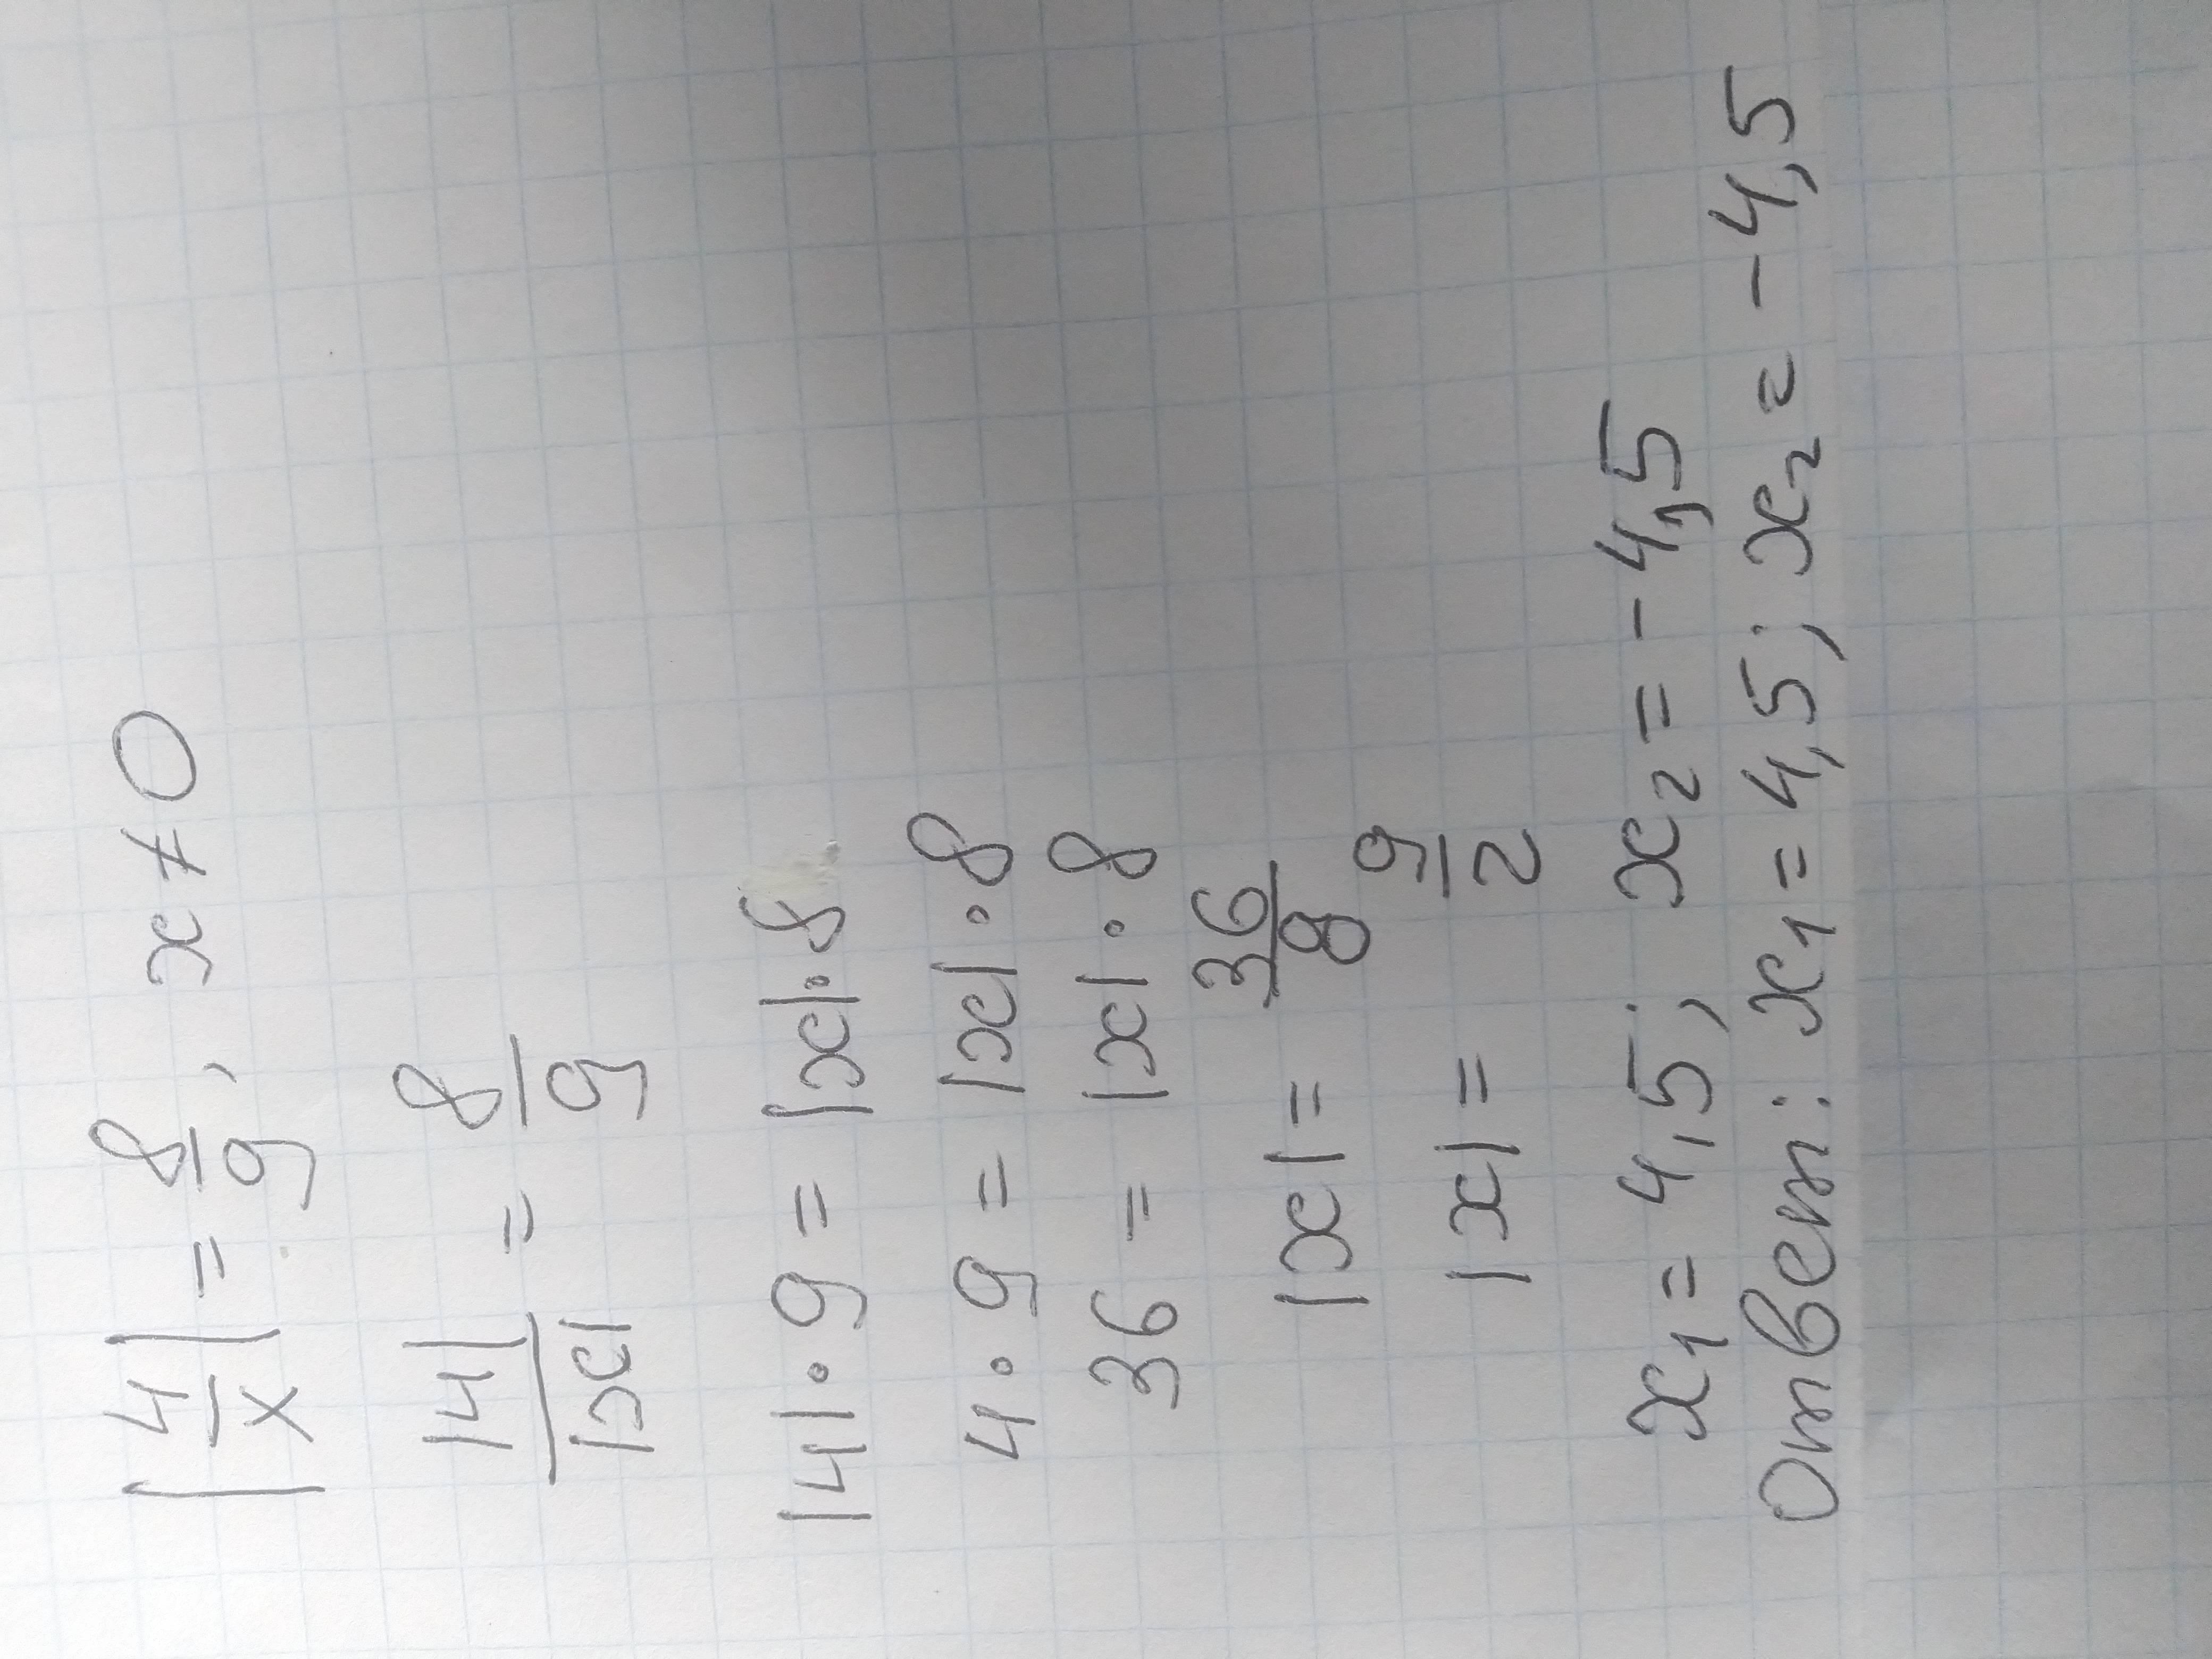 |4/x| = 8/9, x ≠ 0
|4|/|x| = 8/9
|4|·9 = |x|·8
4·9 = |x|·8
36 = |x|·8
|x| = 36/8
|x| = 9/2
x₁ = 4,5; x₂ = -4,5
Ответ: x₁ = 4,5; x₂ = -4,5